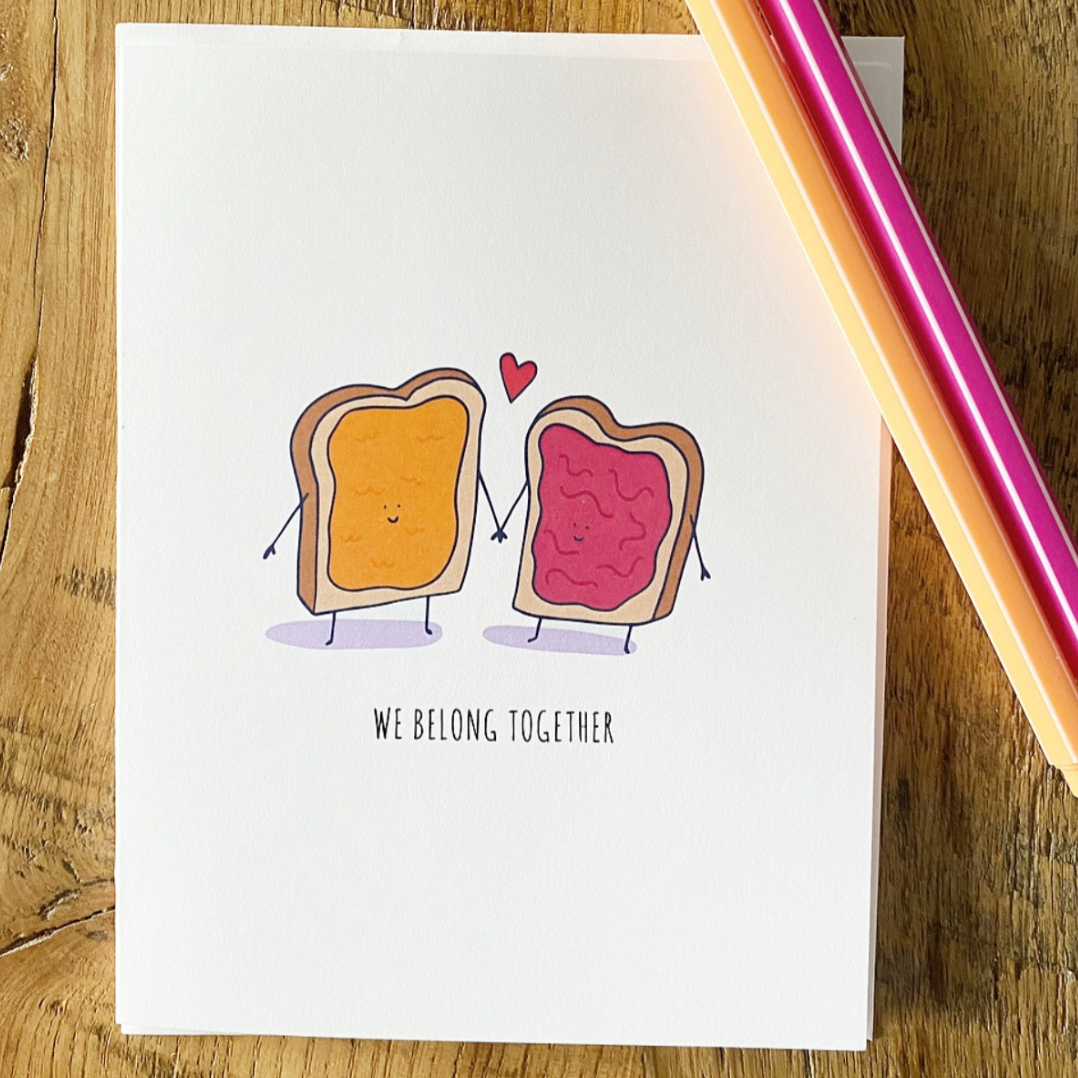 WE BELONG TOGETHER